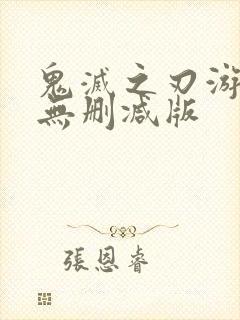 鬼滅之刃游
無刪減版
張恩睿